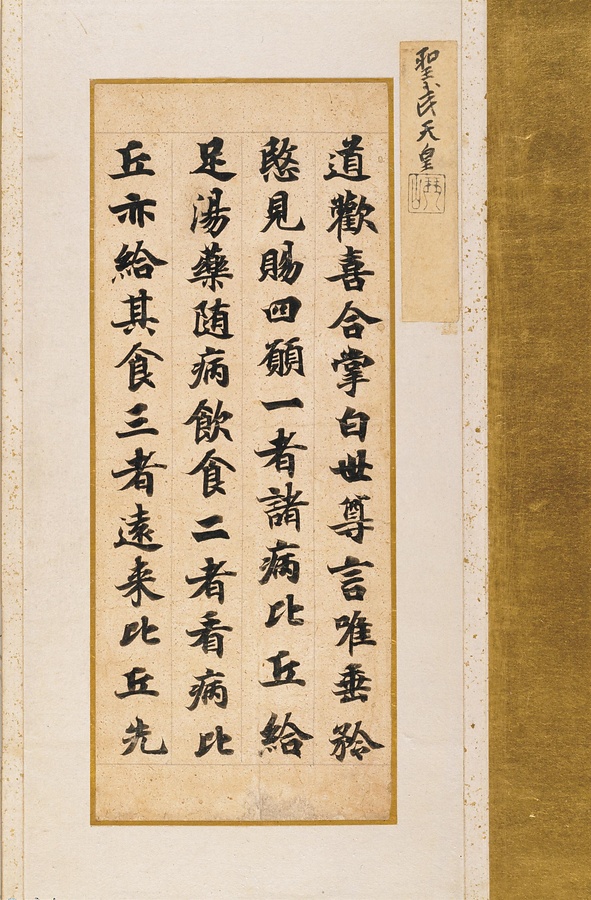 聖武天皇
道歡喜合掌白世尊言唯垂矜
愍見賜四願一者諸病比丘給
足湯藥随病飲食二者看病比
丘亦給其食三者遠来比丘先